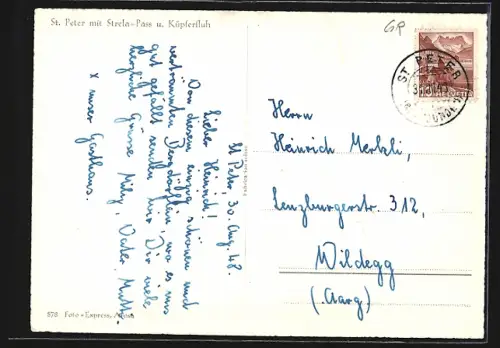 St. Peter mit Strela-Pass u. Küpferfluh
GR
ST. PETER
HELVETIA
St. Peter, 30. Aug. 48.
Lieber Heinrich!
Von diesem einzig schönen und
verträumten Bergdörflein, wo es uns
gut gefällt senden wir Dir viele
herzliche Grüsse Vater, Mutti
x unser Gasthaus.
Herrn
Heinrich
Lenzburgerstr. 312,
Wildegg
(Aarg)
878 Foto-Express, Arosa